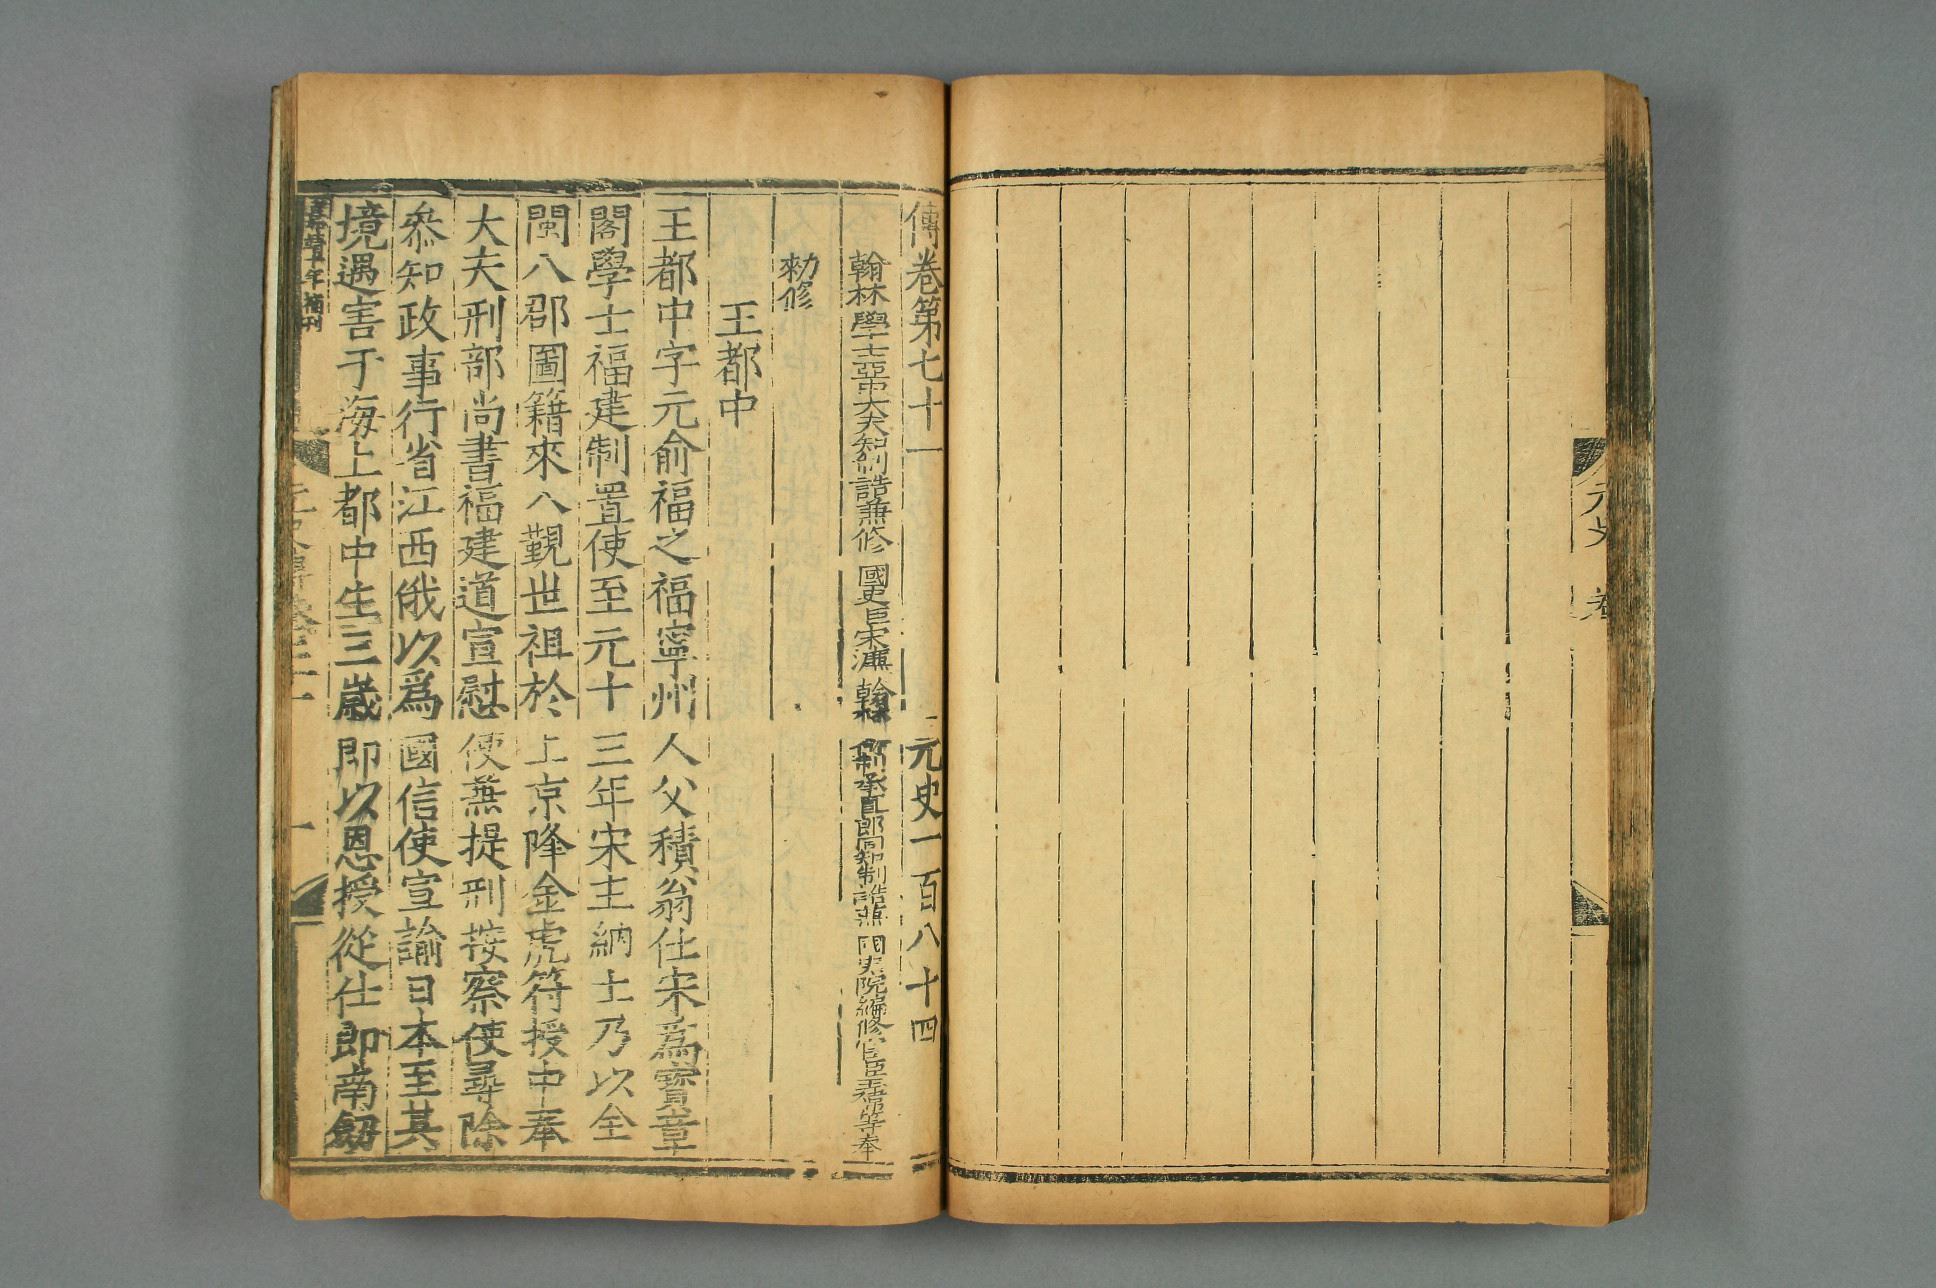 元史 卷
傳卷第七十一 元史一百八十四
翰林學士亞中大夫知制誥兼修國史臣宋濂 翰林 承直郎同知制誥兼國史院編修官臣王褘等奉
勑修
王都中
王都中字元俞福之福寧州人父積翁仕宋爲寶章
閣學士福建制置使至元十三年宋主納土乃以全
閩八郡圖籍來入覲世祖於上京降金虎符授中奉
大夫刑部尚書福建道宣慰使兼提刑按察使尋除
叅知政事行省江西俄以爲國信使宣諭日本至其
境遇害于海上都中生三歲即以恩授從仕郎南劒
嘉靖十年補刊
元史傳卷七十一 一